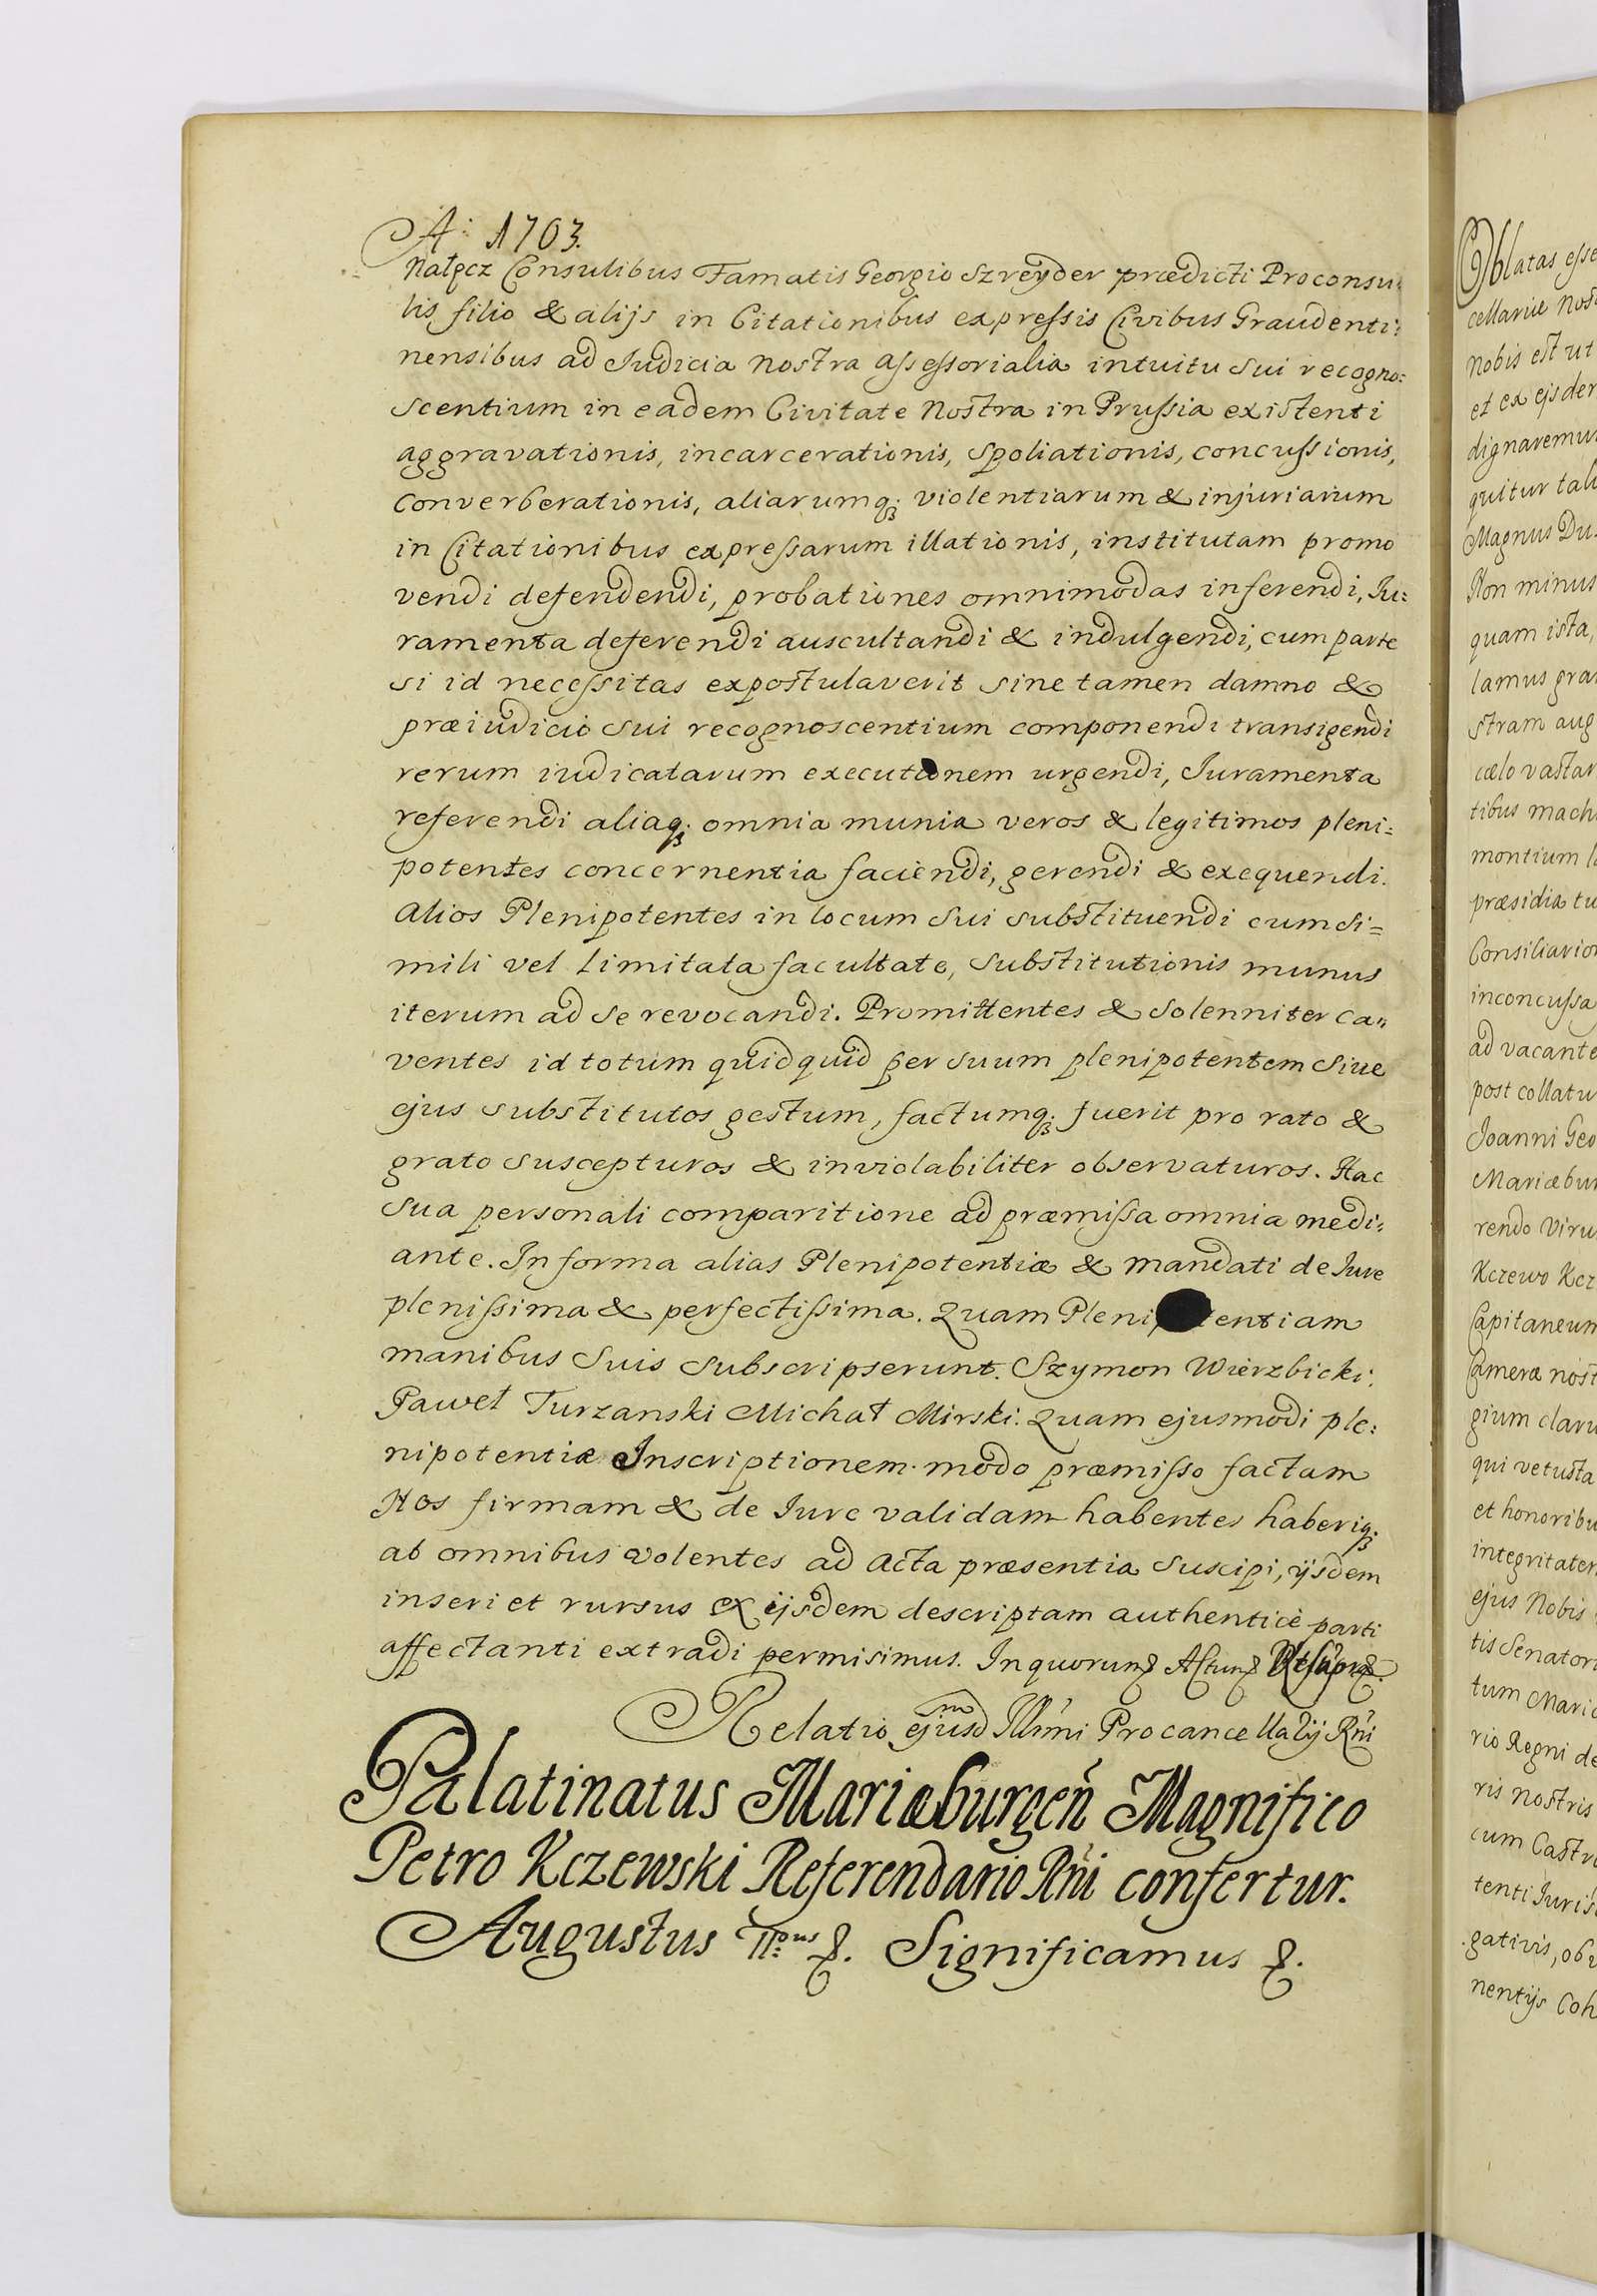 A: 1703.
Nałęcz Consulibus Famatis Georgio Szreyder prædicti Proconsu:
lis filio & alijs in Citationibus expressis Civibus Graudenti:
nensibus ad Iudicia Nostra assessorialia intuitu sui recogno:
scentium in eadem Civitate Nostra in Prussia existenti
aggravationis, incarcerationis, spoliationis, concussionis,
converberationis, aliarumq; violentiarum & injuriarum
in Citationibus expressarum illationis, institutam promo
vendi defendendi, probationes omnimodas inferendi, Iu:
ramenta deferendi auscultandi & indulgendi, cum parte
si id necessitas expostulaverit sine tamen damno &
præiudicio sui recognoscentium componendi transigendi
rerum iudicatarum executionem urgendi, Iuramenta
referendi aliaq; omnia munia veros & legitimos pleni=
potentes concernentia faciendi, gerendi & exequendi.
Alios Plenipotentes in locum sui substituendi cum si=
mili vel limitata facultate, substitutionis munus
iterum ad se revocandi. Promittentes & solenniter ca"
ventes id totum quidquid per suum plenipotentem sive
ejus substitutos gestum, factumq; fuerit pro rato &
grato suscepturos & inviolabiliter observaturos. Hac
sua personali comparitione ad præmissa omnia medi:
ante. In forma alias Plenipotentiæ & mandati de Iure
plenissima & perfectissima. Quam Plenipotentiam
manibus suis subscripserunt. Szymon Wierzbicki:
Paweł Turzanski Michał Mirski: Quam ejusmodi ple:
nipotentiæ Inscriptionem modo præmisso factam
Nos firmam & de Iure validam habentes haberiq;
ab omnibus volentes ad Acta præsentia suscipi, ijsdem
inseri et rursus ex ijsdem descriptam authenticè parti
affectanti extradi permisimus. In quorum Actum Ut supra.
Relatio ejusd Illmi Procancellarij Rni
Palatinatus Mariæburgeñ Magnifico
Petro Kczewski Referendario Rni confertur.
Augustus II.dus &. Significamus &.
Oblatas esse
cellariæ Nos
Nobis est ut
et ex ejsdem
dignaremur
quitur tali
Magnus Du
Non minus
quam ista,
lamus gra
stram aug
cælo vastar
tibus mach
montium l
præsidia tu
Consiliario
inconcussa
ad vacante
post collatu
Joanni Geo
Mariæbur
rendo Viru
Kczewo Kcz
Capitaneum
Cameræ nost
gium claru
qui vetusta
et honoribu
integritatem
ejus Nobis
tis Senatori
tum Mariæ
rio Regni de
ris nostris
cum Castro
tenti Juris
gativis, ob
nentijs coh